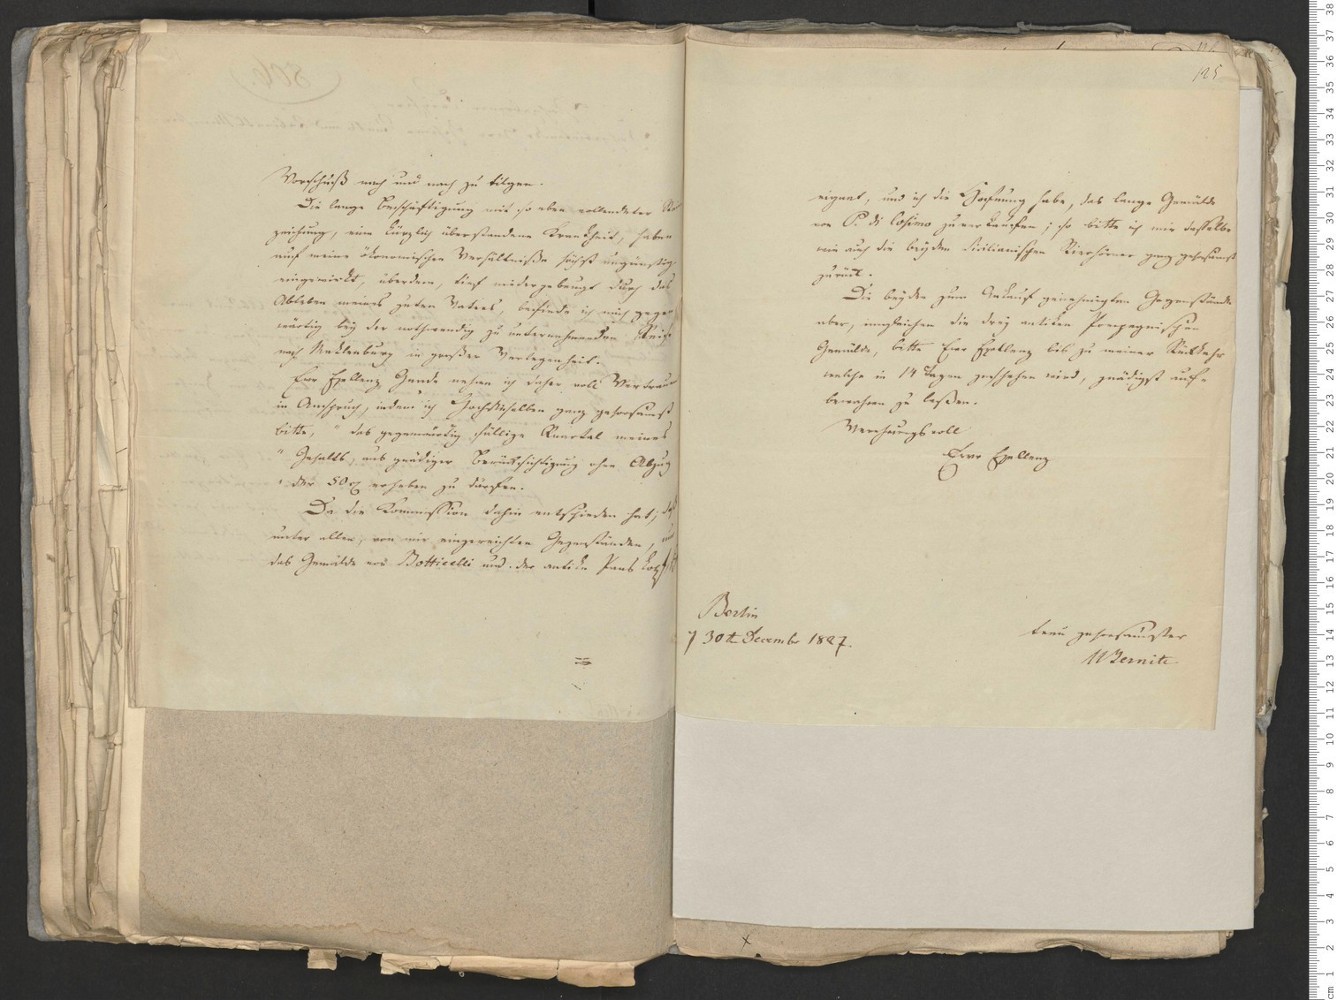 Vorschuß nach und nach zu tilgen.
Die lange Beschäftigung mit so eben vollendeter
zeichnung, eine kürzlich überstandene Krankheit, haben
auf meine ökonomischen Verhältniße höchst ungünstig
eingewirkt, überdem, tief niedergebeugt durch das
Ableben meines guten Vaters, befinde ich mich gegen
wärtig bey der nothwendig zu unternehmenden Reise
nach Meklenburg in großer Verlegenheit.
Ewr Exellenz Gnade nehme ich daher voll Vertrauen
in Anspruch, indem ich Hochdieselben ganz gehorsamst
bitte, " das gegenwärtig fällige Quartal meines
" Gehalts, aus gnädiger Berücksichtigung ohne Abzug
" der 50 erheben zu dürfen.
Da die Kommission dahin entschieden hat, daß
unter allen, von mir eingereichten Gegenständen, nur
das Gemälde von Botticelli und der antike Pans Kopf
125
eignet, und ich die Hoffnung habe, das lange Gemälde
von P. di Cosimo zu verkaufen; so bitte ich mir dasselbe
wie auch die beyden Sicilianischen ganz gehorsamst
zurück.
Die beyden zum Ankauf genehmigten Gegenstände
aber, imgleichen die drey antiken Pompeyanischen
Gemälde, bitte Ewr Exellenz bis zu meiner Rückkehr
welche in 14 Tagen geschehen wird, gnädigst auf-
bewahren zu laßen.
Verehrungsvoll
Ewr Exellenz
Berlin
30t December 1827.
treu gehorsamster
W Ternite